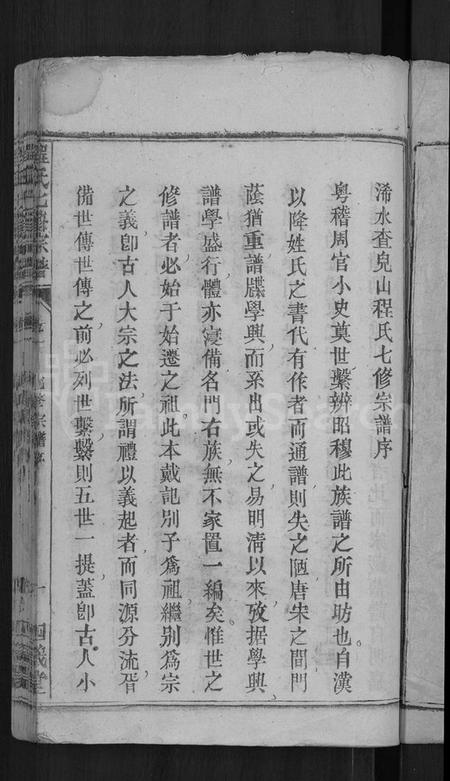 浠水查兒山程氏七修宗譜序
粵稽周官小史奠世繫辨昭穆此族譜之所由昉也自漢
以降姓氏之書代有作者而通譜則失之陋唐宋之間門
蔭猶重譜牒學興而系出或失之易明清以來攷据學興
譜學盛行體亦寖備名門右族無不家置一編矣惟世之
修譜者必始于始遷之祖此本戴記別子爲祖繼別爲宗
之義卽古人大宗之法所謂禮以義起者而同源分流胥
備世傳世傳之前必列世繫繫則五世一提蓋卽古人小
程氏七修宗譜
FamilySearch